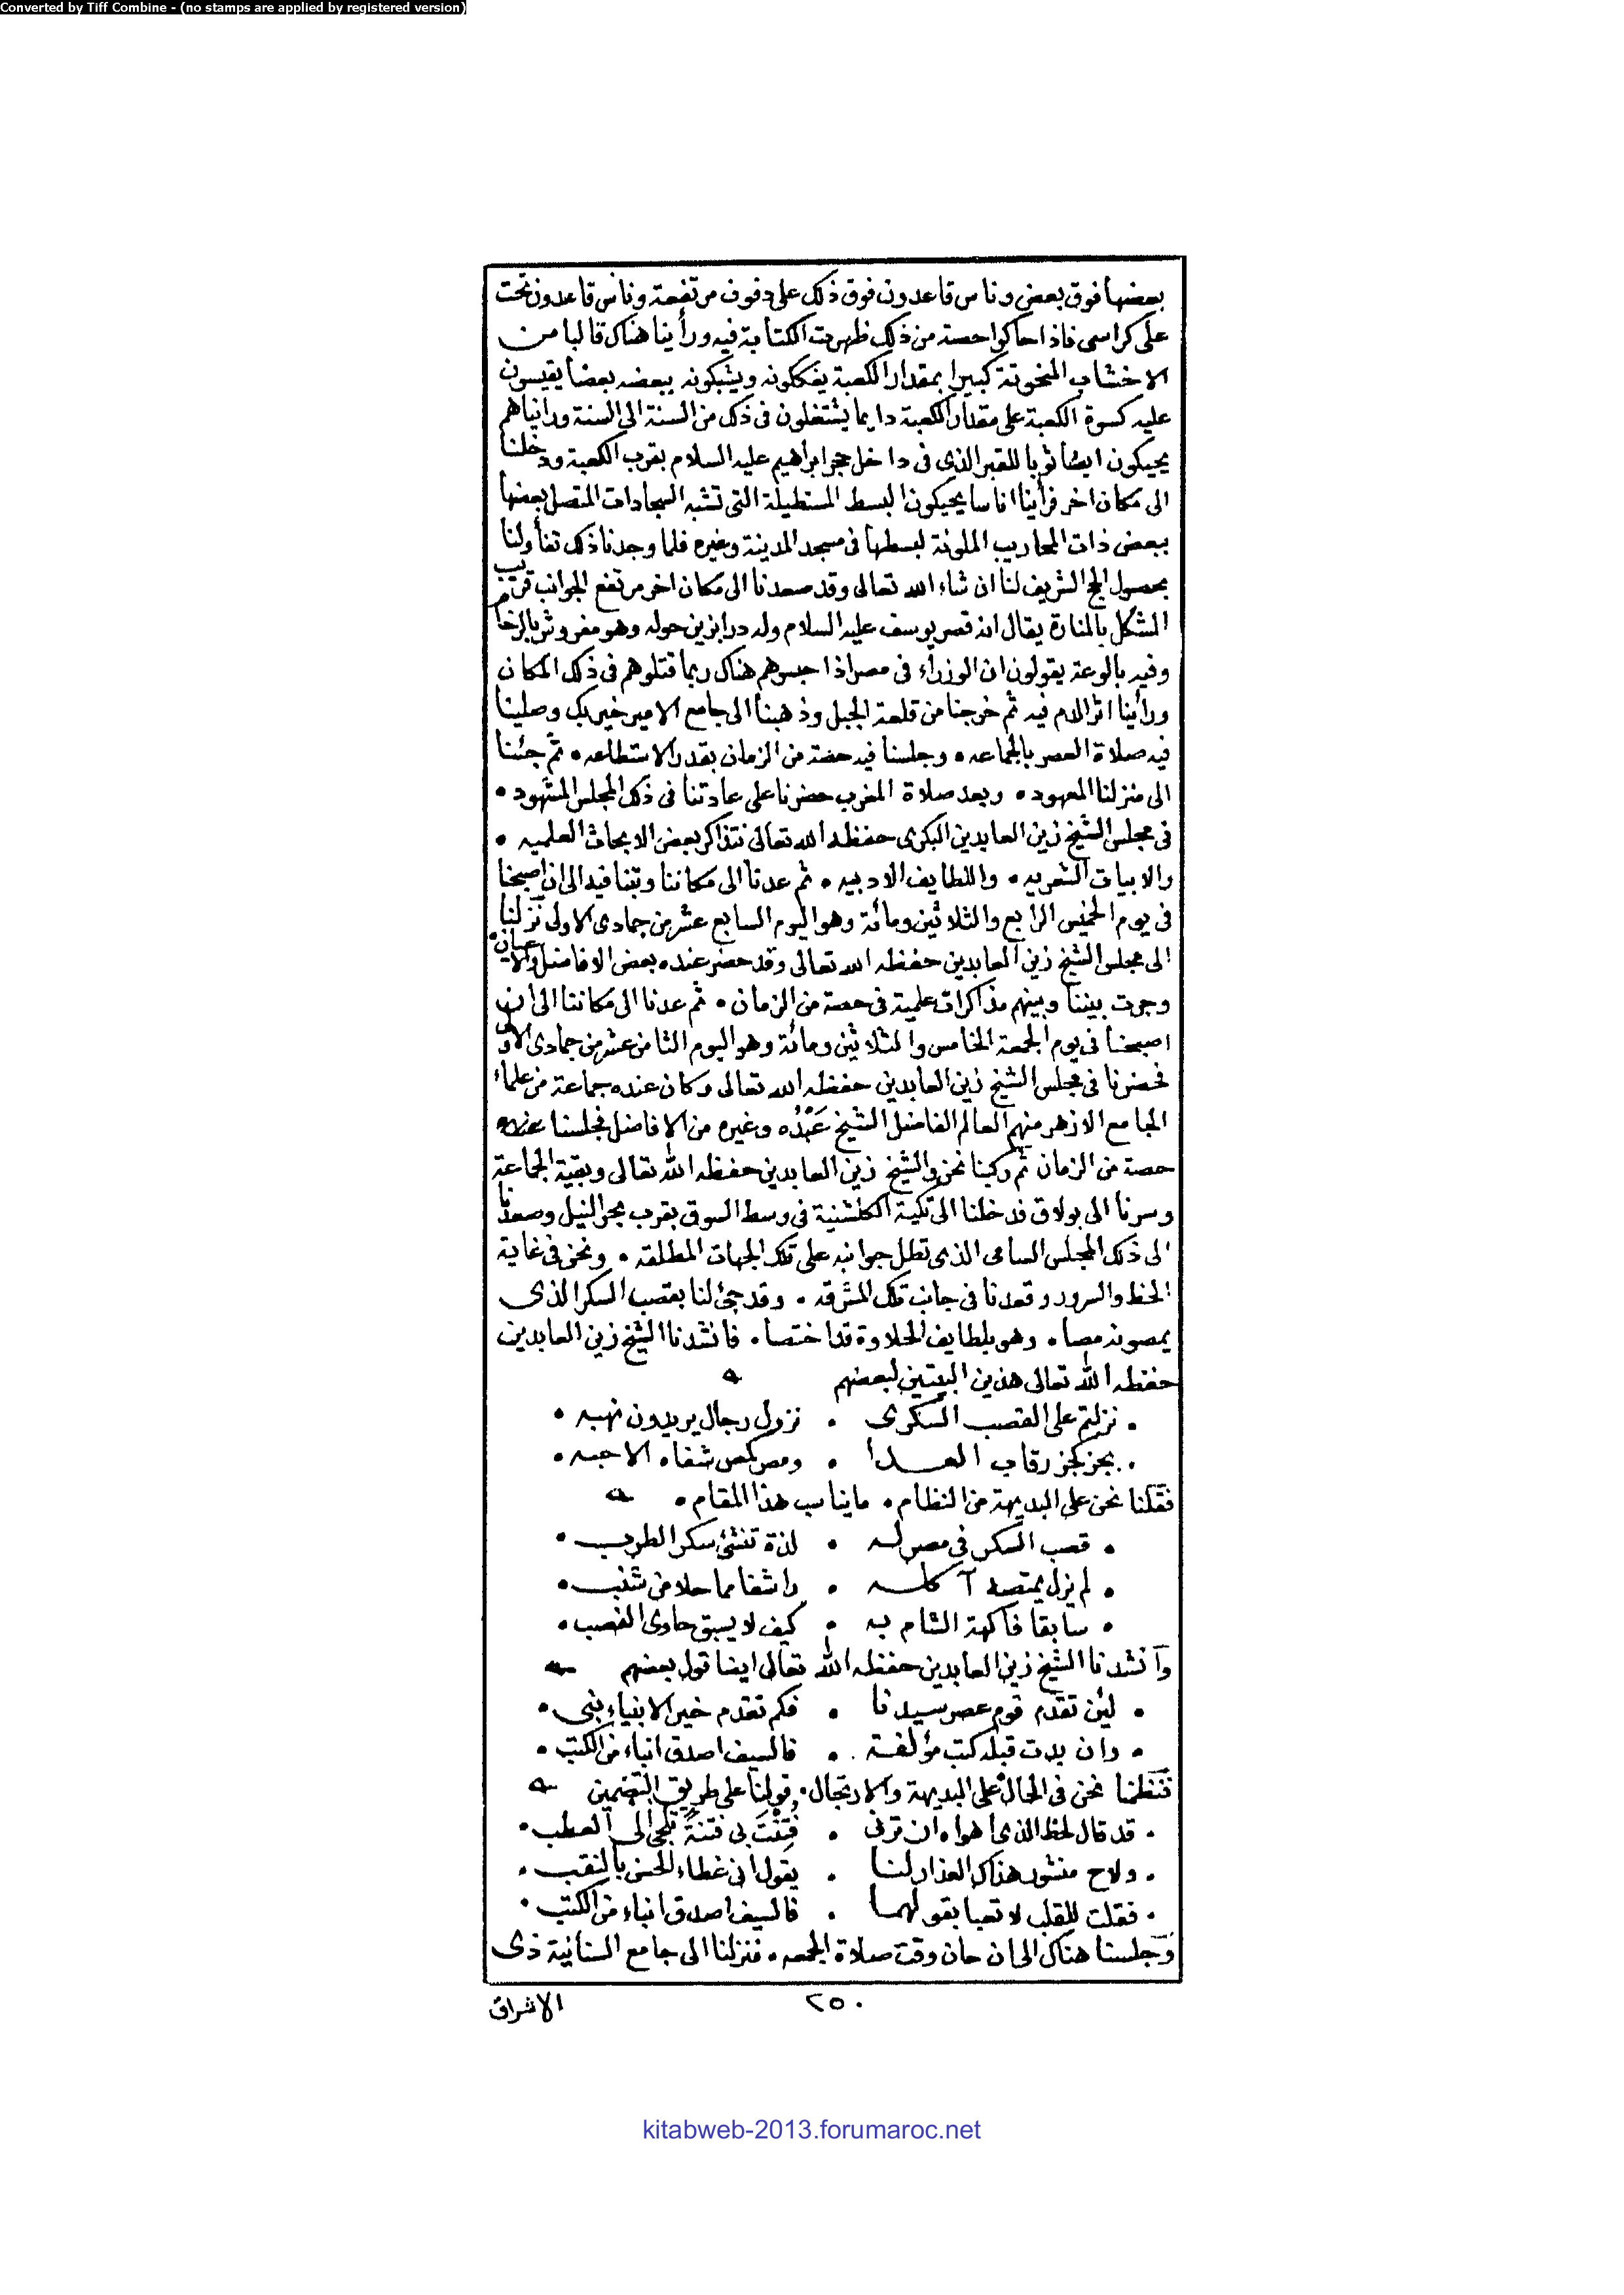 Converted by Tiff Combine - (no stamps are applied by registered version)
بعضها فوق بعض وناس قاعدون فوق ذلك على دفوف مرتفعة وناس قاعدون تحت
على كراسى فاذا حاكوا حصة من ذلك ظهرت الكتابة فيه ورأينا هناك قالبا من
الاخشاب المنحوتة كبيرا بمقدار الكعبة يفككونه ويشبكونه ببعضه بعضا يقيسون
عليه كسوة الكعبة على مقدار الكعبة دايما يشتغلون فى ذلك من السنة الى السنة ورأيناهم
يحيكون ايضا ثوبا للقبر الذى فى داخل حجر ابراهيم عليه السلام بقرب الكعبة ودخلنا
الى مكان اخر فرأينا اناسا يحيكون البسط المستطيلة التى تشبه السجادات المتصل بعضها
ببعض ذات المحاريب الملونة لبسطها فى مسجد المدينة وغيره فلما وجدنا ذلك تفأولنا
بحصول الحج الشريف لنا ان شاء الله تعالى وقد صعدنا الى مكان اخر مرتفع الجوانب قريب
الشكل بالمنارة يقال انه قصر يوسف عليه السلام وله درابزين حوله وهو مفروش بالرخام
وفيه بالوعة يقولون ان الوزراء فى مصر اذا حبسوهم هناك ربما قتلوهم فى ذلك المكان
ورأينا اثر الدم فيه ثم خرجنا من قلعة الجبل وذهبنا الى جامع الامير خير بك وصلينا
فيه صلاة العصر بالجماعه • وجلسنا فيه حصة من الزمان بقدر الاستطاعه • ثم جئنا
الى منزلنا المعهود • وبعد صلاة المغرب حضرنا على عادتنا فى ذلك المجلس المشهود •
فى مجلس الشيخ زين العابدين البكرى حفظه الله تعالى نتذاكر بعض الابحاث العلميه •
والابيات الشعريه • واللطايف الادبيه • ثم عدنا الى مكاننا وبتنا فيه الى ان اصبحنا
فى يوم الخميس الرابع والثلاثين ومائة وهو اليوم السابع عشر من جمادى الاولى نزلنا
الى مجلس الشيخ زين العابدين حفظه الله تعالى وقد حضر عنده بعض الافاضل والاعيان •
وجرت بيننا وبينهم مذاكرات علمية فى حصة من الزمان • ثم عدنا الى مكاننا الى ان
اصبحنا فى يوم الجمعة الخامس والثلاثين ومائة وهو اليوم الثامن عشر من جمادى الاولى
فحضرنا فى مجلس الشيخ زين العابدين حفظه الله تعالى وكان عنده جماعة من علماء
الجامع الازهر منهم العالم الفاضل الشيخ عَبْدُه وغيره من الافاضل فجلسنا عنده
حصة من الزمان ثم ركبنا نحن والشيخ زين العابدين حفظه الله تعالى وبقية الجماعة
وسرنا الى بولاق فدخلنا الى تكية الكلشنية فى وسط السوق بقرب بحر النيل وصعدنا
الى ذلك المجلس السامى الذى تطل جوانبه على تلك الجهات المطلقه • ونحن فى غاية
الحظ والسرور وقعدنا فى جانب تلك المشرقه • وقد جئ لنا بقصب السكر الذى
يمصونه مصا • وهو بلطايف الحلاوة قد اختصا • فانشدنا الشيخ زين العابدين
حفظه الله تعالى هذين البيتين لبعضهم
• نزلتم على القصب السكرى • نزول رجال يريدون نهبه •
• بجز كجز رقاب العدا • ومص كمص شفاه الاحبه •
فقلنا نحن على البديهة من النظام • ما يناسب هذا المقام •
• قصب السكر فى مصر له • لذة تنشئ سكر الطرب •
• لم يزل يمتصه آكله • راشفا مما حلا من شنب •
• سابقا فاكهة الشام به • كيف لا يسبق حاوى القصب •
وأنشدنا الشيخ زين العابدين حفظه الله تعالى ايضا قول بعضهم
• لئن تقدم قوم عصر سيدنا • فكم تقدم خير الانبياء نبى •
• وان بدت قبله كتب مؤلفة • فالسيف اصدق انباء من الكتب •
فنظمنا نحن فى الحال على البديهة والارتجال • قولنا على طريق التضمين
• قد قال لحظ الذى اهواه ان ترنى • فُتِنْتَ بى فتنةً تلجى الى العطب •
• ولاح منشور هناك العذار لنا • يقول انى غطاء الحسن بالنقب •
• فقلت للقلب لا تعبا بقولهما • فالسيف اصدق انباء من الكتب •
وجلسنا هناك الى ان حان وقت صلاة الجمعه • فنزلنا الى جامع السنانية ذى
٢٥٠
الاشراق
kitabweb-2013.forumaroc.net